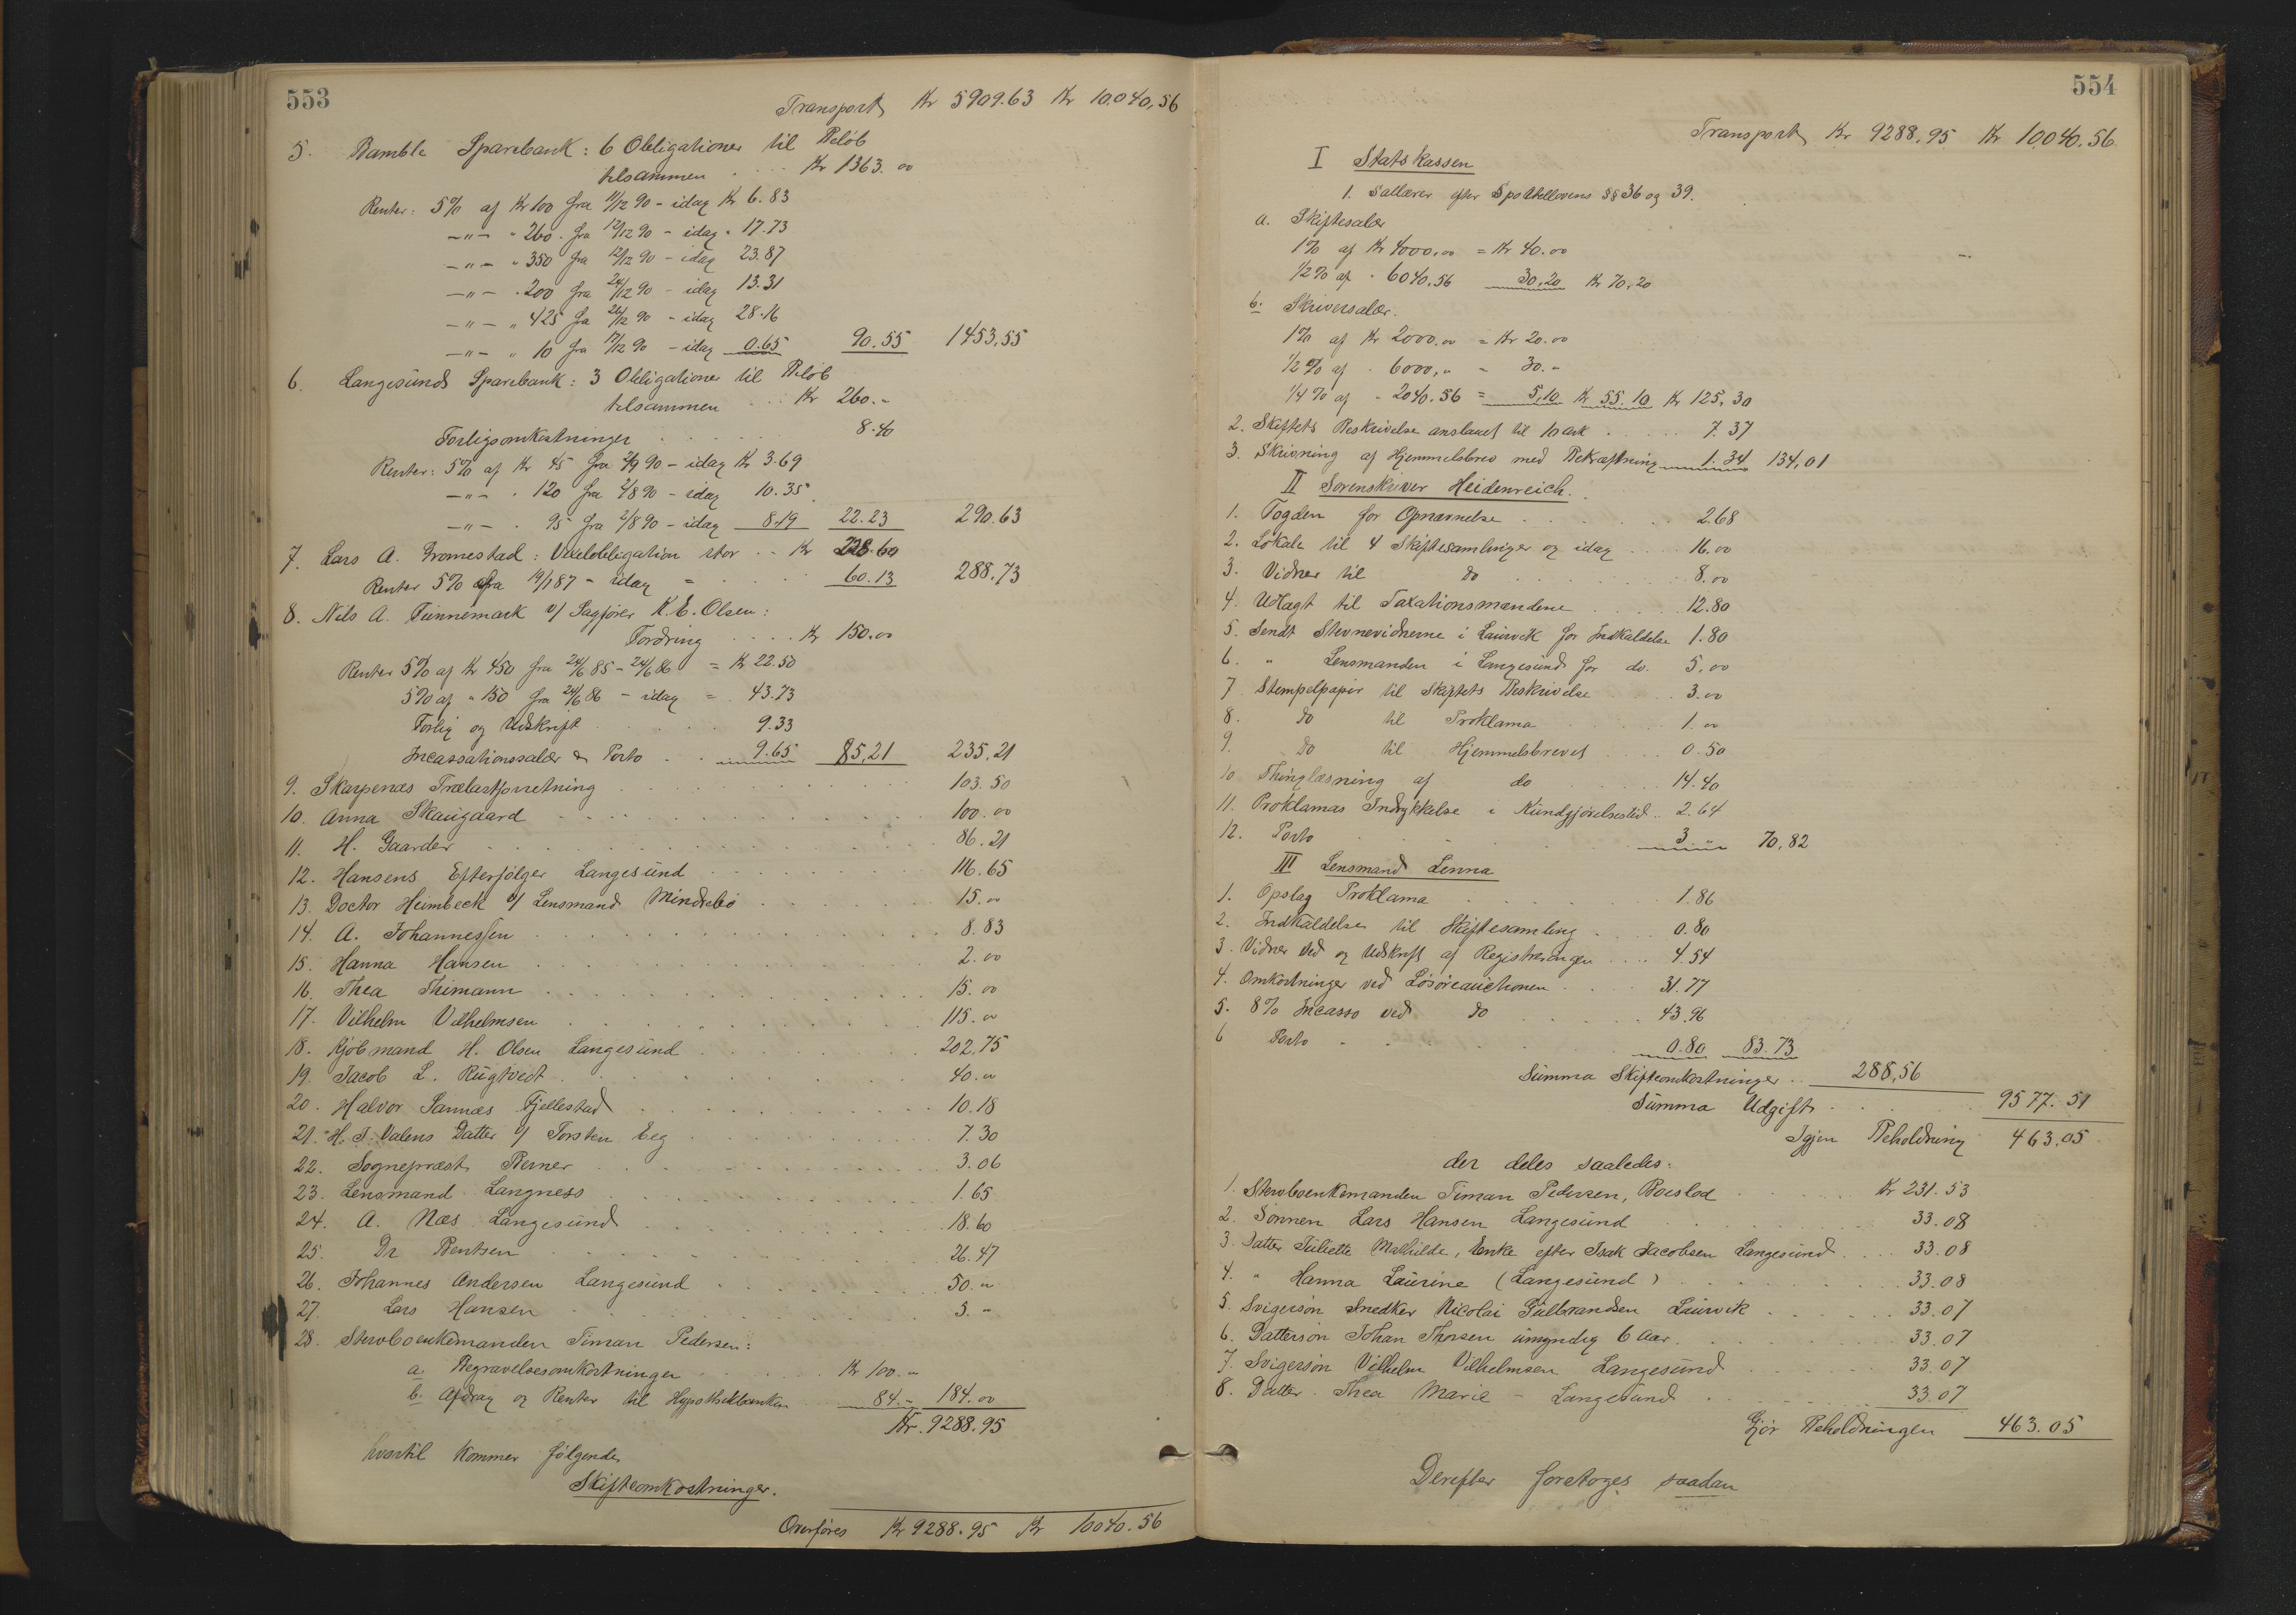 553
Transport Kr 5909.63 Kr 10,040,56
5. Bamble Sparebank: 6 Obligationer til Beløb
tilsammen . . . Kr 1363.00
Renter: 5% af Kr 100 fra 11/12 90 - idag Kr 6.83
—"— " 260. fra 12/12 90 - idag " 17.73
—"— " 350 fra 12/12 90 - idag 23.87
—"— . 200 fra 24/12 90 - idag 13.31
—"— " 425 fra 26/12 90 - idag 28.16
—"— " 10 fra 17/12 90 - idag 0.65 90.55 1453,55
6. Langesunds Sparebank: 3 Obligationer til Beløb
tilsammen . . . Kr 260.-
Forligsomkostninger . . . . . 8.40
Renter: 5% af Kr 45 fra 2/9 90 - idag Kr 3.69
—"— . 120 fra 2/8 90 - idag 10.35
—"— . 95 fra 2/8 90 - idag 8.19 22.23 290.63
7. Lars A. Tromestad: Vaxelobligation stor . . Kr 228.60
Renter 5% fra 19/1 87 - idag = . . . 60.13 288.73
8. Nils A. Finnemark v/ Sagfører K. E. Olsen:
Fordring . . . . Kr 150.00
Renter 5% af Kr 450 fra 24/6 85 - 24/6 86 = Kr 22.50
5% af " 150 fra 24/6 86 - idag = . 43.73
Forlig og Udskrift . . . . . 9.33
Incassationssalær & Porto . . 9.65 85,21 235,21
9. Skarpenæs Trælastforretning . . . 103.50
10. Anna Skaugaard . . . 100.00
11. H. Gaarder . . . 86.21
12. Hansens Efterfølger Langesund . . . 116.65
13. Doctor Heimbeck v/ Lensmand Mindrebø . . . 15.00
14. A. Johannessen . . . 8.83
15. Hanna Hansen . . . 2.00
16. Thea Thimann . . . 15.00
17. Vilhelm Vilhelmsen . . . 115.00
18. Kjøbmand H. Olsen Langesund . . . 202,75
19. Jacob L. Rugtvedt . . . 40.00
20. Halvor Sannæs Fjellestad . . . 10.18
21. H. T. Valens Datter v/ Torsten Eeg . . . 7.30
22. Sognepræst Berner . . . 3.06
23. Lensmand Langness . . . 1.65
24. A. Næs Langesund . . . 18.60
25. Dr Bentsen . . . 26.47
26. Johannes Andersen Langesund . . . 50.00
27. Lars Hansen . . . 5.-
28. Stervboenkemanden Timan Pedersen:
a. Begravelsesomkostninger . . . Kr 100.00
b. Afdrag og Renter til Hypothekbanken 84.- 184.00
Kr. 9288.95
hvortil kommer følgende
Skifteomkostninger.
Overføres Kr 9288.95 Kr 10040.56
554
Transport Kr 9288.95 Kr 10,040.56
I Statskassen
1. Sallærer efter Sportellovens §§ 36 og 39.
a. Skiftesalær
1% af Kr 4000,00 = Kr 40.00
1/2% af . 6040,56 30,20 Kr 70,20
b. Skriversalær.
1% af Kr 2000.00 = Kr 20.00
1/2% af . 6000," - 30.-
1/4% af - 2040.56 = 5,10 Kr 55.10 Kr 125,30
2. Skiftets Beskrivelse anslaaet til 10 ark . . . . 7.37
3. Skrivning af Hjemmelsbrev med Bekræftning 1.34 134,01
II Sorenskriver Heidenreich.
1. Fogden for Opnævnelse . . . 2.68
2. Lokale til 4 Skiftesamlinger og idag . . . 16.00
3. Vidner til do . . . 8.00
4. Udlagt til Taxationsmændene . . . 12.80
5. Sendt Stevnevidnerne i Laurvik for Indkaldelse 1.80
6. " Lensmanden i Langesund for do. 5.00
7. Stempelpapir til Skiftets Beskrivelse . . . 3.00
8. do til Proklama . . . 1.00
9. Do til Hjemmelsbrevet . . . 0.50
10 Thinglæsning af do . . . 14.40
11. Proklamas Indrykkelse i Kundgjørelsestid . . 2.64
12. Porto . . . 3.00 70,82
III Lensmand Lenna
1. Opslag Proklama . . . 1.86
2. Indkaldelse til Skiftesamling . . . 0.80
3. Vidner ved og Udskrift af Registreringen . . . 4.54
4. Omkostninger ved Løsøreauctionen . . . 31.77
5. 8% Incasso ved do . . . 43,96
6 Porto . . . 0.80 83.73
Summa Skifteomkostninger . . 288,56
Summa Udgift . . . 9577.51
Igjen Beholdning 463.05
der deles saaledes:
1. Stervboenkemanden Timan Pedersen, Boeslod . . . Kr 231.53
2. Sønnen Lars Hansen Langesund . . . 33.08
3. Datter Juliette Mathilde, Enke efter Isak Jacobsen Langesund . . . 33.08
4. " Hanna Laurine (Langesund) . . . 33.08
5. Svigersøn Snedker Nicolai Gulbrandsen Laurvik . . . 33.07
6. Dattersøn Johan Thorsen umyndig 6 Aar . . . 33.07
7. Svigersøn Vilhelm Vilhelmsen Langesund . . . 33.07
8. Datter Thea Marie - Langesund . . . 33.07
Gjør Beholdningen 463.05
Derefter foretoges saadan